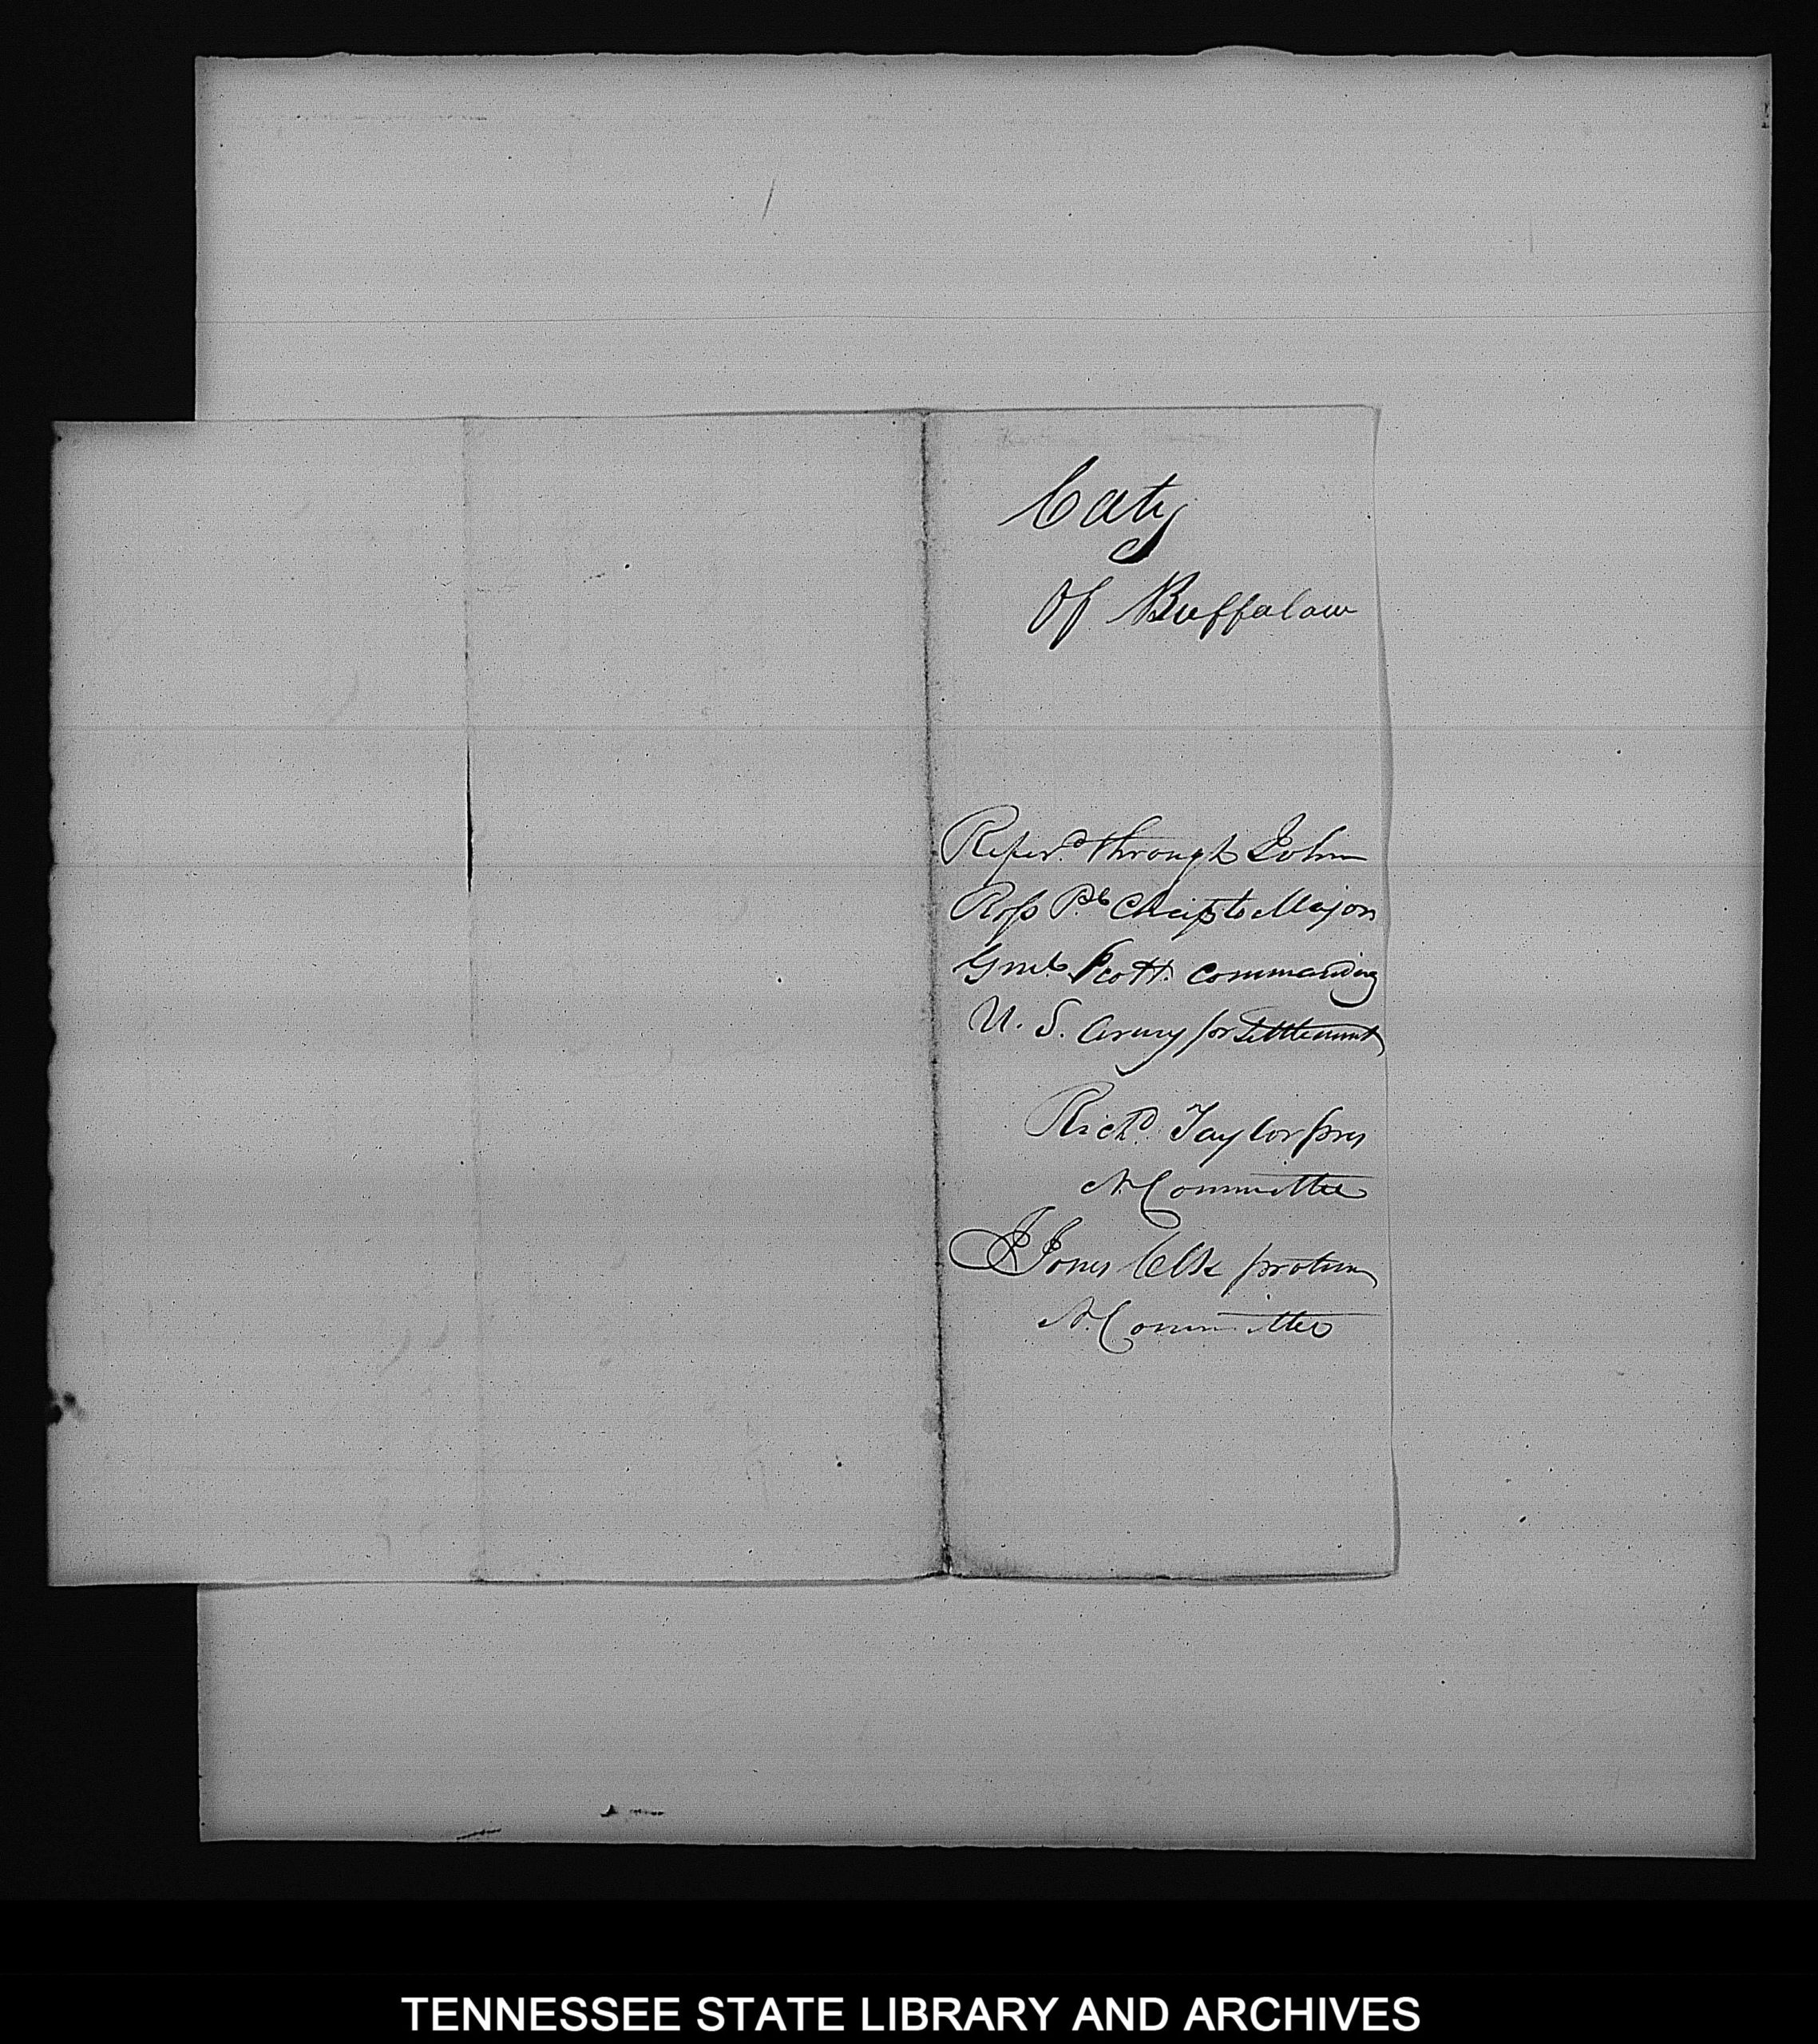 Caty
Of Buffalaw
Refer.d through John
Ross P.l Chief to Major
Gen.l Scott commanding
U. S. Army for Settlement
Rich.d Taylor pres
N. Committee
J Jones Clk protem
N. Committee
TENNESSEE STATE LIBRARY AND ARCHIVES